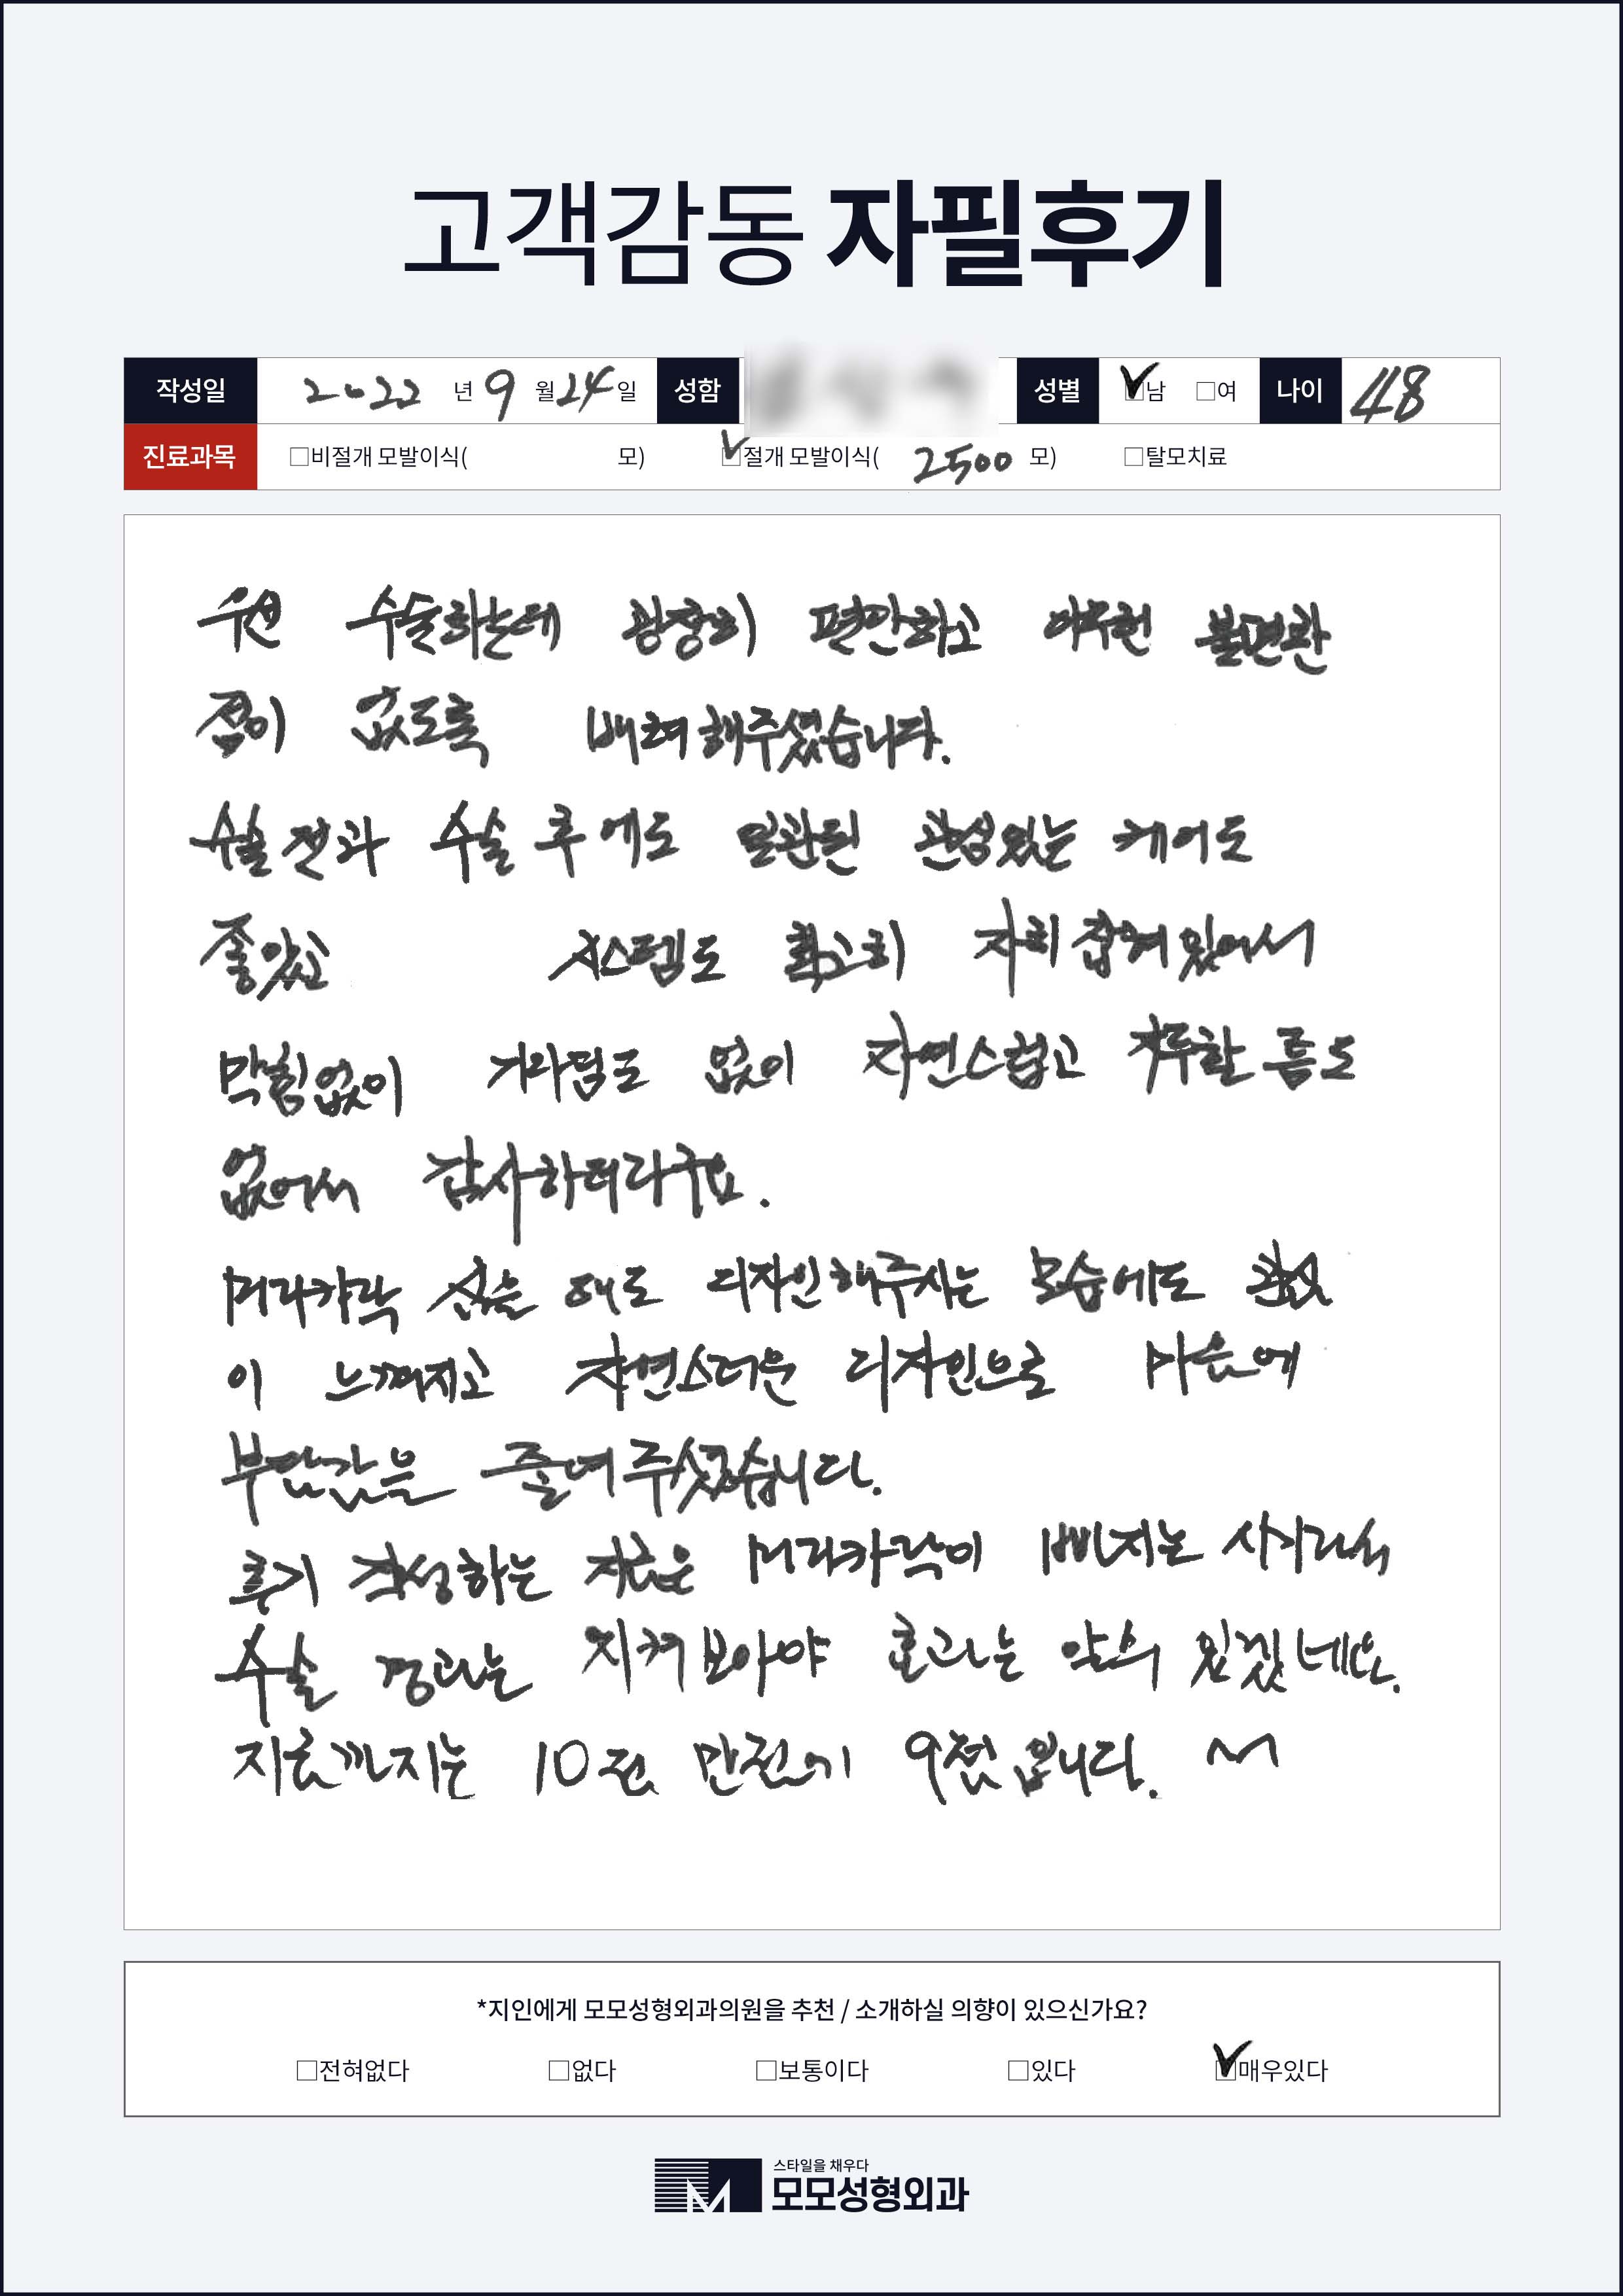 고객감동 자필후기
작성일 2022 년 9 월 24 일 성함 성별 ☑남 □여 나이 48
진료과목 □비절개 모발이식( 모) ☑절개 모발이식( 2500 모) □탈모치료
우선 수술하는데 굉장히 편안하고 아무런 불편한
점이 없도록 배려해주셨습니다.
수술전과 수술 후에도 일관된 관심있는 케어도
좋았고 시스템도 확고히 자리잡혀있어서
막힘없이 기다림도 없이 자연스럽고 지루할 틈도
없어서 감사하더라구요.
머리카락 심을 때도 디자인해주시는 모습에도
이 느껴지고 자연스러운 디자인으로 마음에
부담감을 줄여주셨습니다.
후기 작성하는 지금은 머리카락이 빠지는 시기라서
수술 경과는 지켜보아야 효과는 알수 있겠네요.
지금까지는 10점 만점에 9점입니다.
*지인에게 모모성형외과의원을 추천 / 소개하실 의향이 있으신가요?
□전혀없다 □없다 □보통이다 □있다 ☑매우있다
스타일을 채우다
모모성형외과